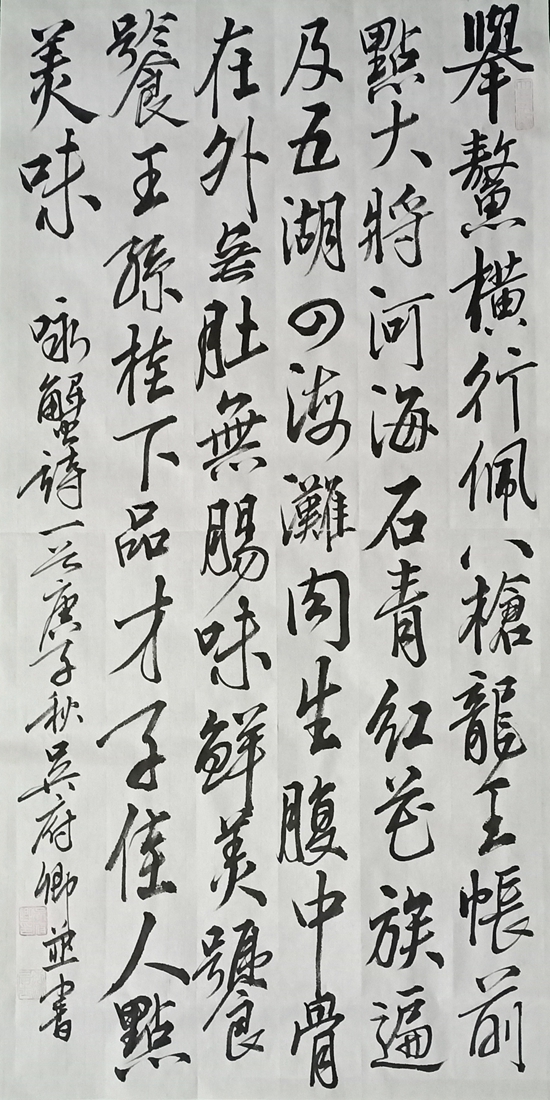 舉鰲橫行佩八槍龍王帳前
點大將河海石青紅花族遍
及五湖四海灘肉生腹中骨
在外無肚無腸味鮮美饕
餮王孫桂下品才子佳人點
美味 咏蟹詩一首庚子秋吳府卿並書